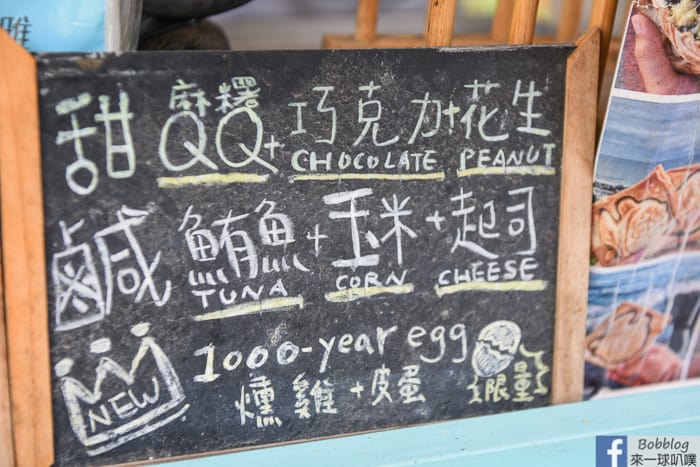 雅
麻糬
甜 QQ+巧克力+花生
CHOCOLATE PEANUT
鹹 鮪魚+玉米+起司
TUNA CORN CHEESE
NEW 1000-year egg
燻雞+皮蛋 限量
f Bobblog
來一球叭噗